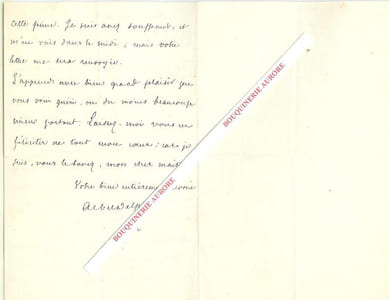 cette pièce. Je suis assez souffrant, et
m'en vais dans le midi, mais votre
lettre me sera renvoyée.
J'apprends avec bien grand plaisir que
vous voilà guéri, ou du moins beaucoup
mieux portant. Laissez-moi vous en
féliciter de tout mon cœur: car je
suis, vous le savez, mon cher
Votre bien
BOUQUINERIE AURORE
BOUQUINERIE AURORE